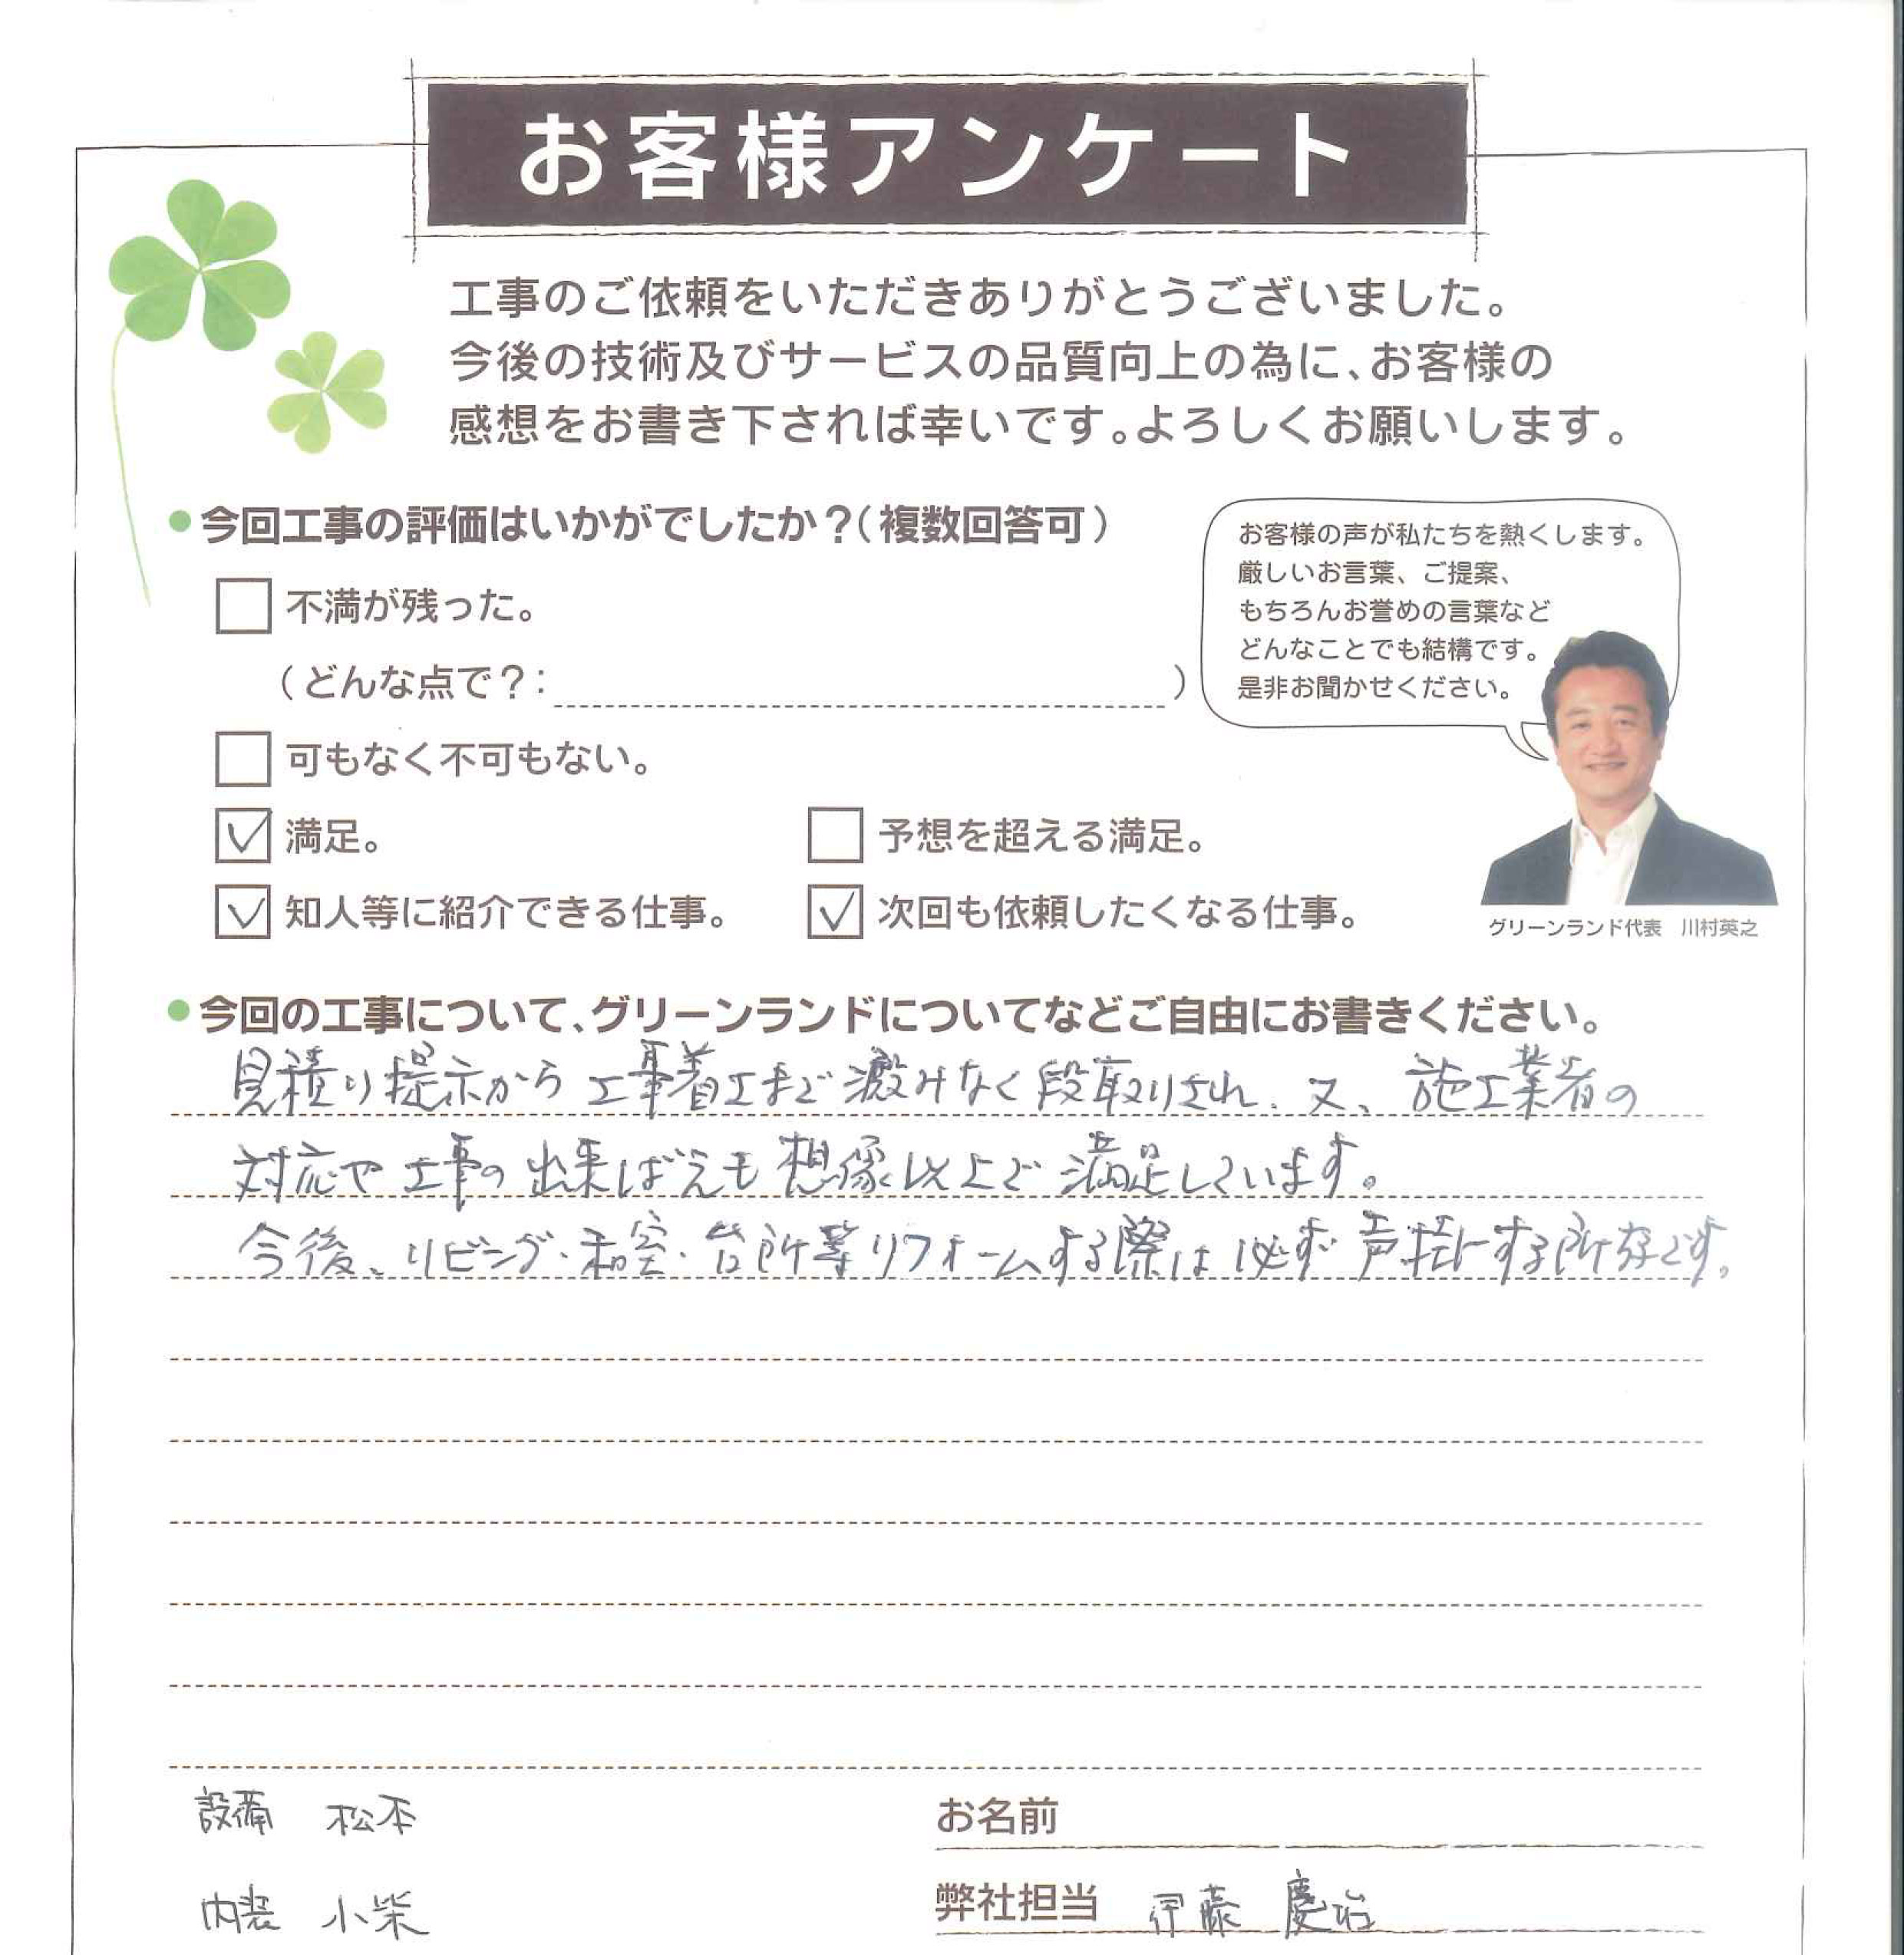 お客様アンケート
工事のご依頼をいただきありがとうございました。
今後の技術及びサービスの品質向上の為に、お客様の
感想をお書き下されば幸いです。よろしくお願いします。
今回工事の評価はいかがでしたか？(複数回答可)
不満が残った。
(どんな点で？: )
可もなく不可もない。
満足。
予想を超える満足。
知人等に紹介できる仕事。
次回も依頼したくなる仕事。
お客様の声が私たちを熱くします。
厳しいお言葉、ご提案、
もちろんお誉めの言葉など
どんなことでも結構です。
是非お聞かせください。
グリーンランド代表 川村英之
今回の工事について、グリーンランドについてなどご自由にお書きください。
見積り提示から工事着工まで澱みなく段取りされ、又、施工業者の
対応や工事の出来ばえも想像以上で満足しています。
今後、リビング・和室・台所等リフォームする際は必ず声掛けする所存です。
設備 松本
内装 小柴
お名前
弊社担当 伊藤 慶治